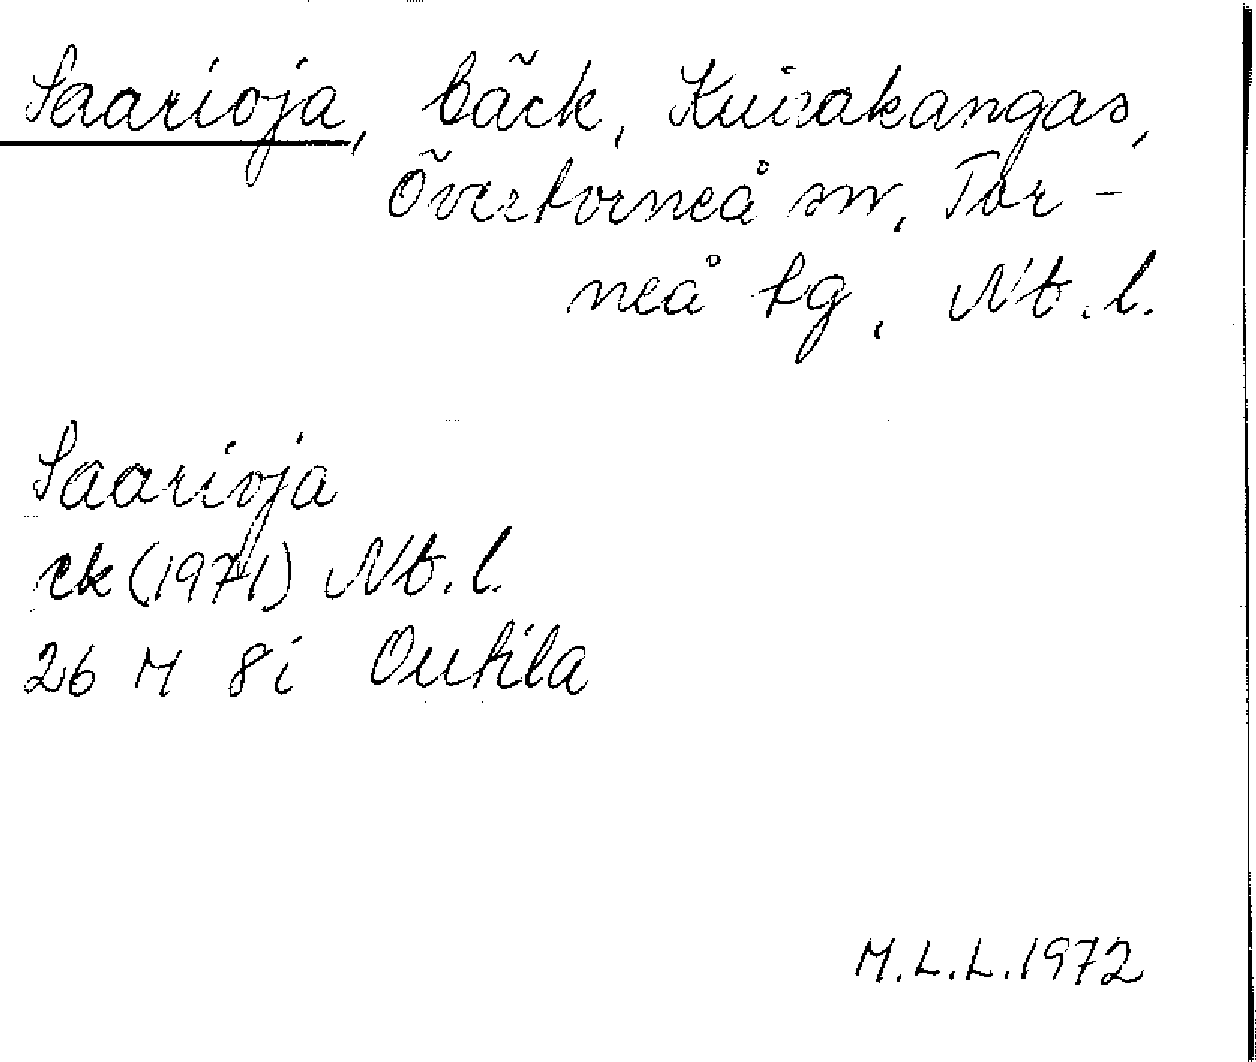 Saarioja, bäck, Kuivakangas,
Övertorneå sn, Tor-
neå tg, Nb. l.
Saarioja
ek (1971) Nb. l.
26 M 8i Outila
M.L.L. 1972